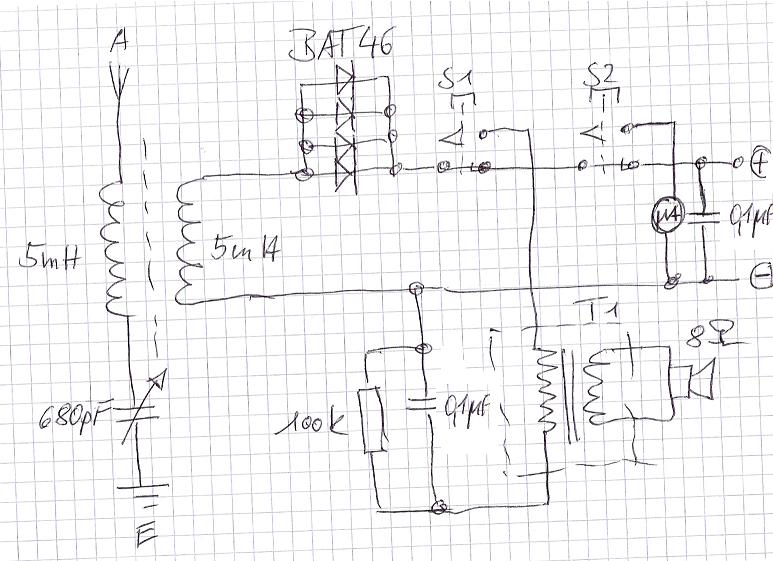 A
BAT46
S1
S2
+
µA
0,1µF
-
5mH
5mH
T1
8Ω
680pF
100k
0,1µF
E